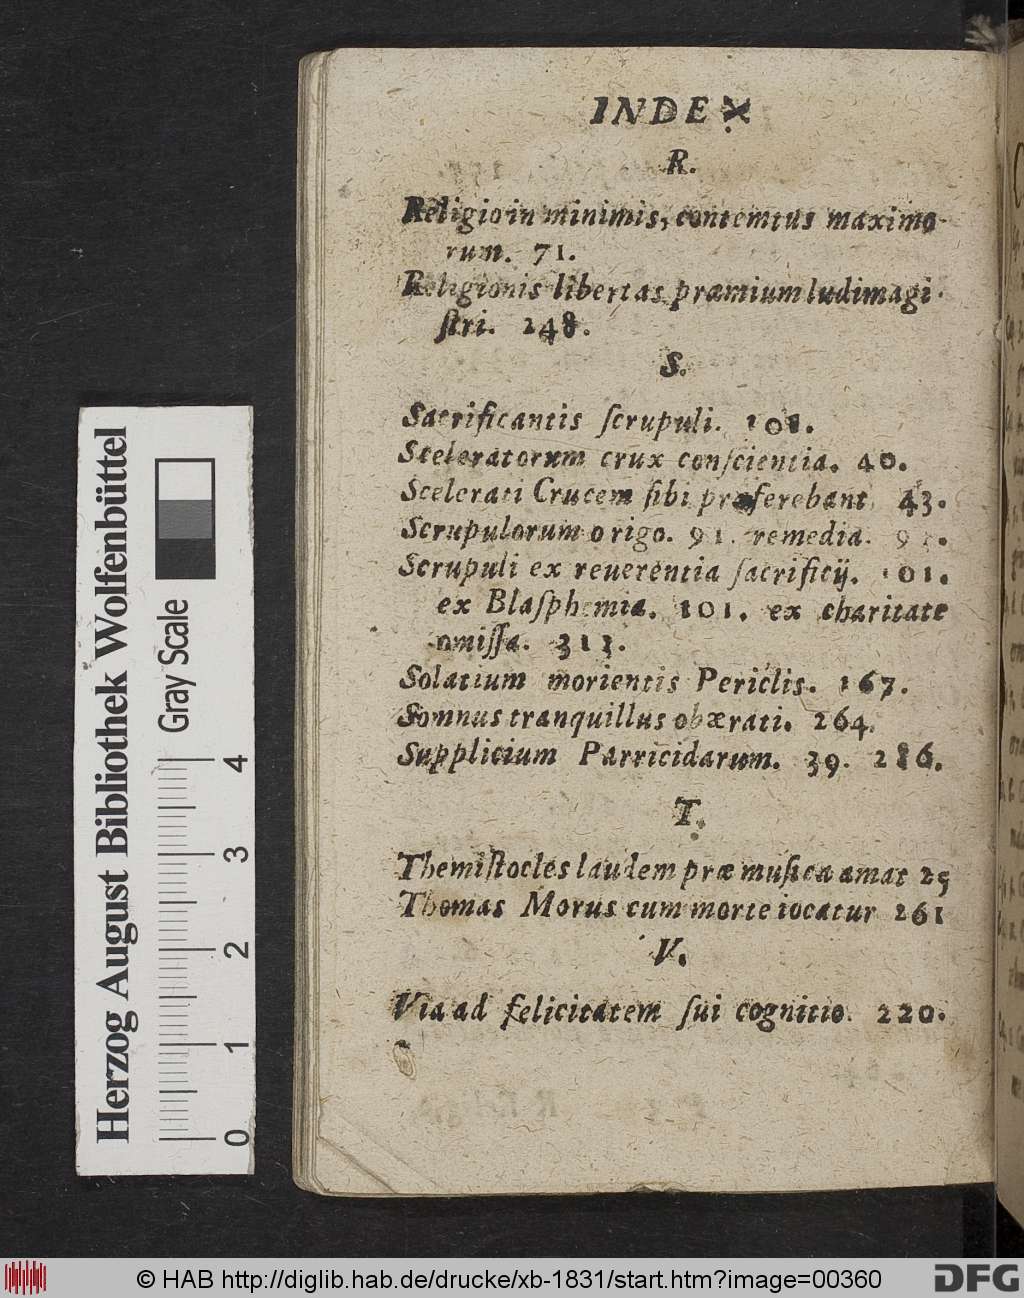 INDEX
R.
Religio in minimis, contemtus maximo-
rum. 71.
Religionis libertas præmium ludimagi-
ſtri. 248.
S.
Sacrificantis ſcrupuli. 101.
Sceleratorum crux conſcientia. 40.
Scelerati Crucem ſibi præferebant 43.
Scrupulorum origo. 91. remedia.
Scrupuli ex reuerentia ſacrificij. 101.
ex Blaſphemia. 101. ex charitate
omiſſa. 313.
Solatium morientis Periclis. 167.
Somnus tranquillus obærati. 264.
Supplicium Parricidarum. 39. 286.
T.
Themiſtocles laudem præ muſica amat 25
Thomas Morus cum morte iocatur 261
V.
Via ad felicitatem ſui cognitio. 220.
Herzog August Bibliothek Wolfenbüttel
Gray Scale
0 1 2 3 4
© HAB http://diglib.hab.de/drucke/xb-1831/start.htm?image=00360
DFG